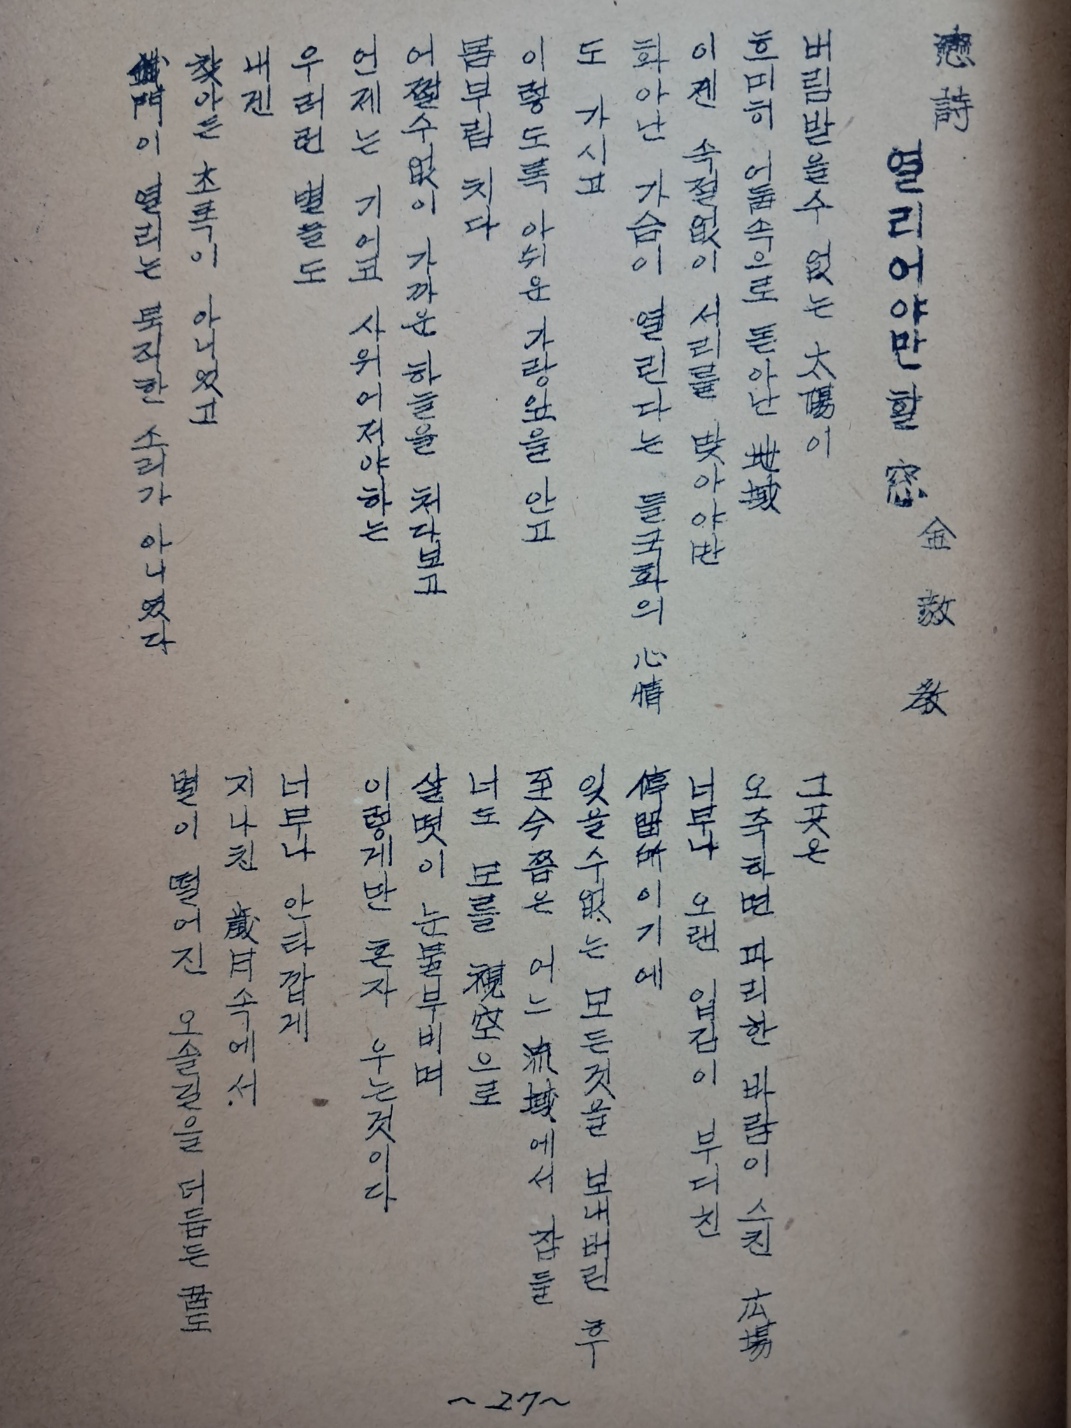 戀詩
열리어야만 할 窓
金 敎 敎
버림받을수 없는 太陽이
흐미히 어둠속으로 돋아난 地域
이젠 속절없이 서리를 맞아야만
화아난 가슴이 열린다는 들국화의 心情
도 가시고
이렇도록 아쉬운 가랑잎을 안고
몸부림 치다
어쩔수없이 가까운 하늘을 처다보고
언제는 기어코 사위어져야하는
우러런 별들도
내전
찾아든 太폭이 아니었고
鐵門이 열리는 묵직한 소리가 아니였다
그곳은
오죽하면 파리한 바람이 스친 広場
너무나 오랜 입김이 부디친
停留場이기에
잊을수없는 모든것을 보내버린 후
至今쯤은 어느 流域에서 잠들
너도 모를 視空으로
살몃이 눈물부비며
이렇게만 혼자 우는것이다
너무나 안타깝게
지나친 歲月속에서
별이 떨어진 오솔길을 더듬든 꿈도
~27~